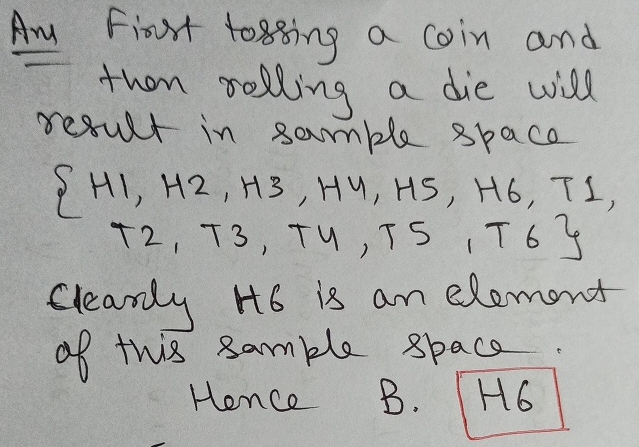 Ans First tossing a coin and
then rolling a die will
result in sample space
{ H1, H2, H3, H4, H5, H6, T1,
T2, T3, T4, T5, T6 }
Clearly H6 is an element
of this sample space.
Hence B. H6